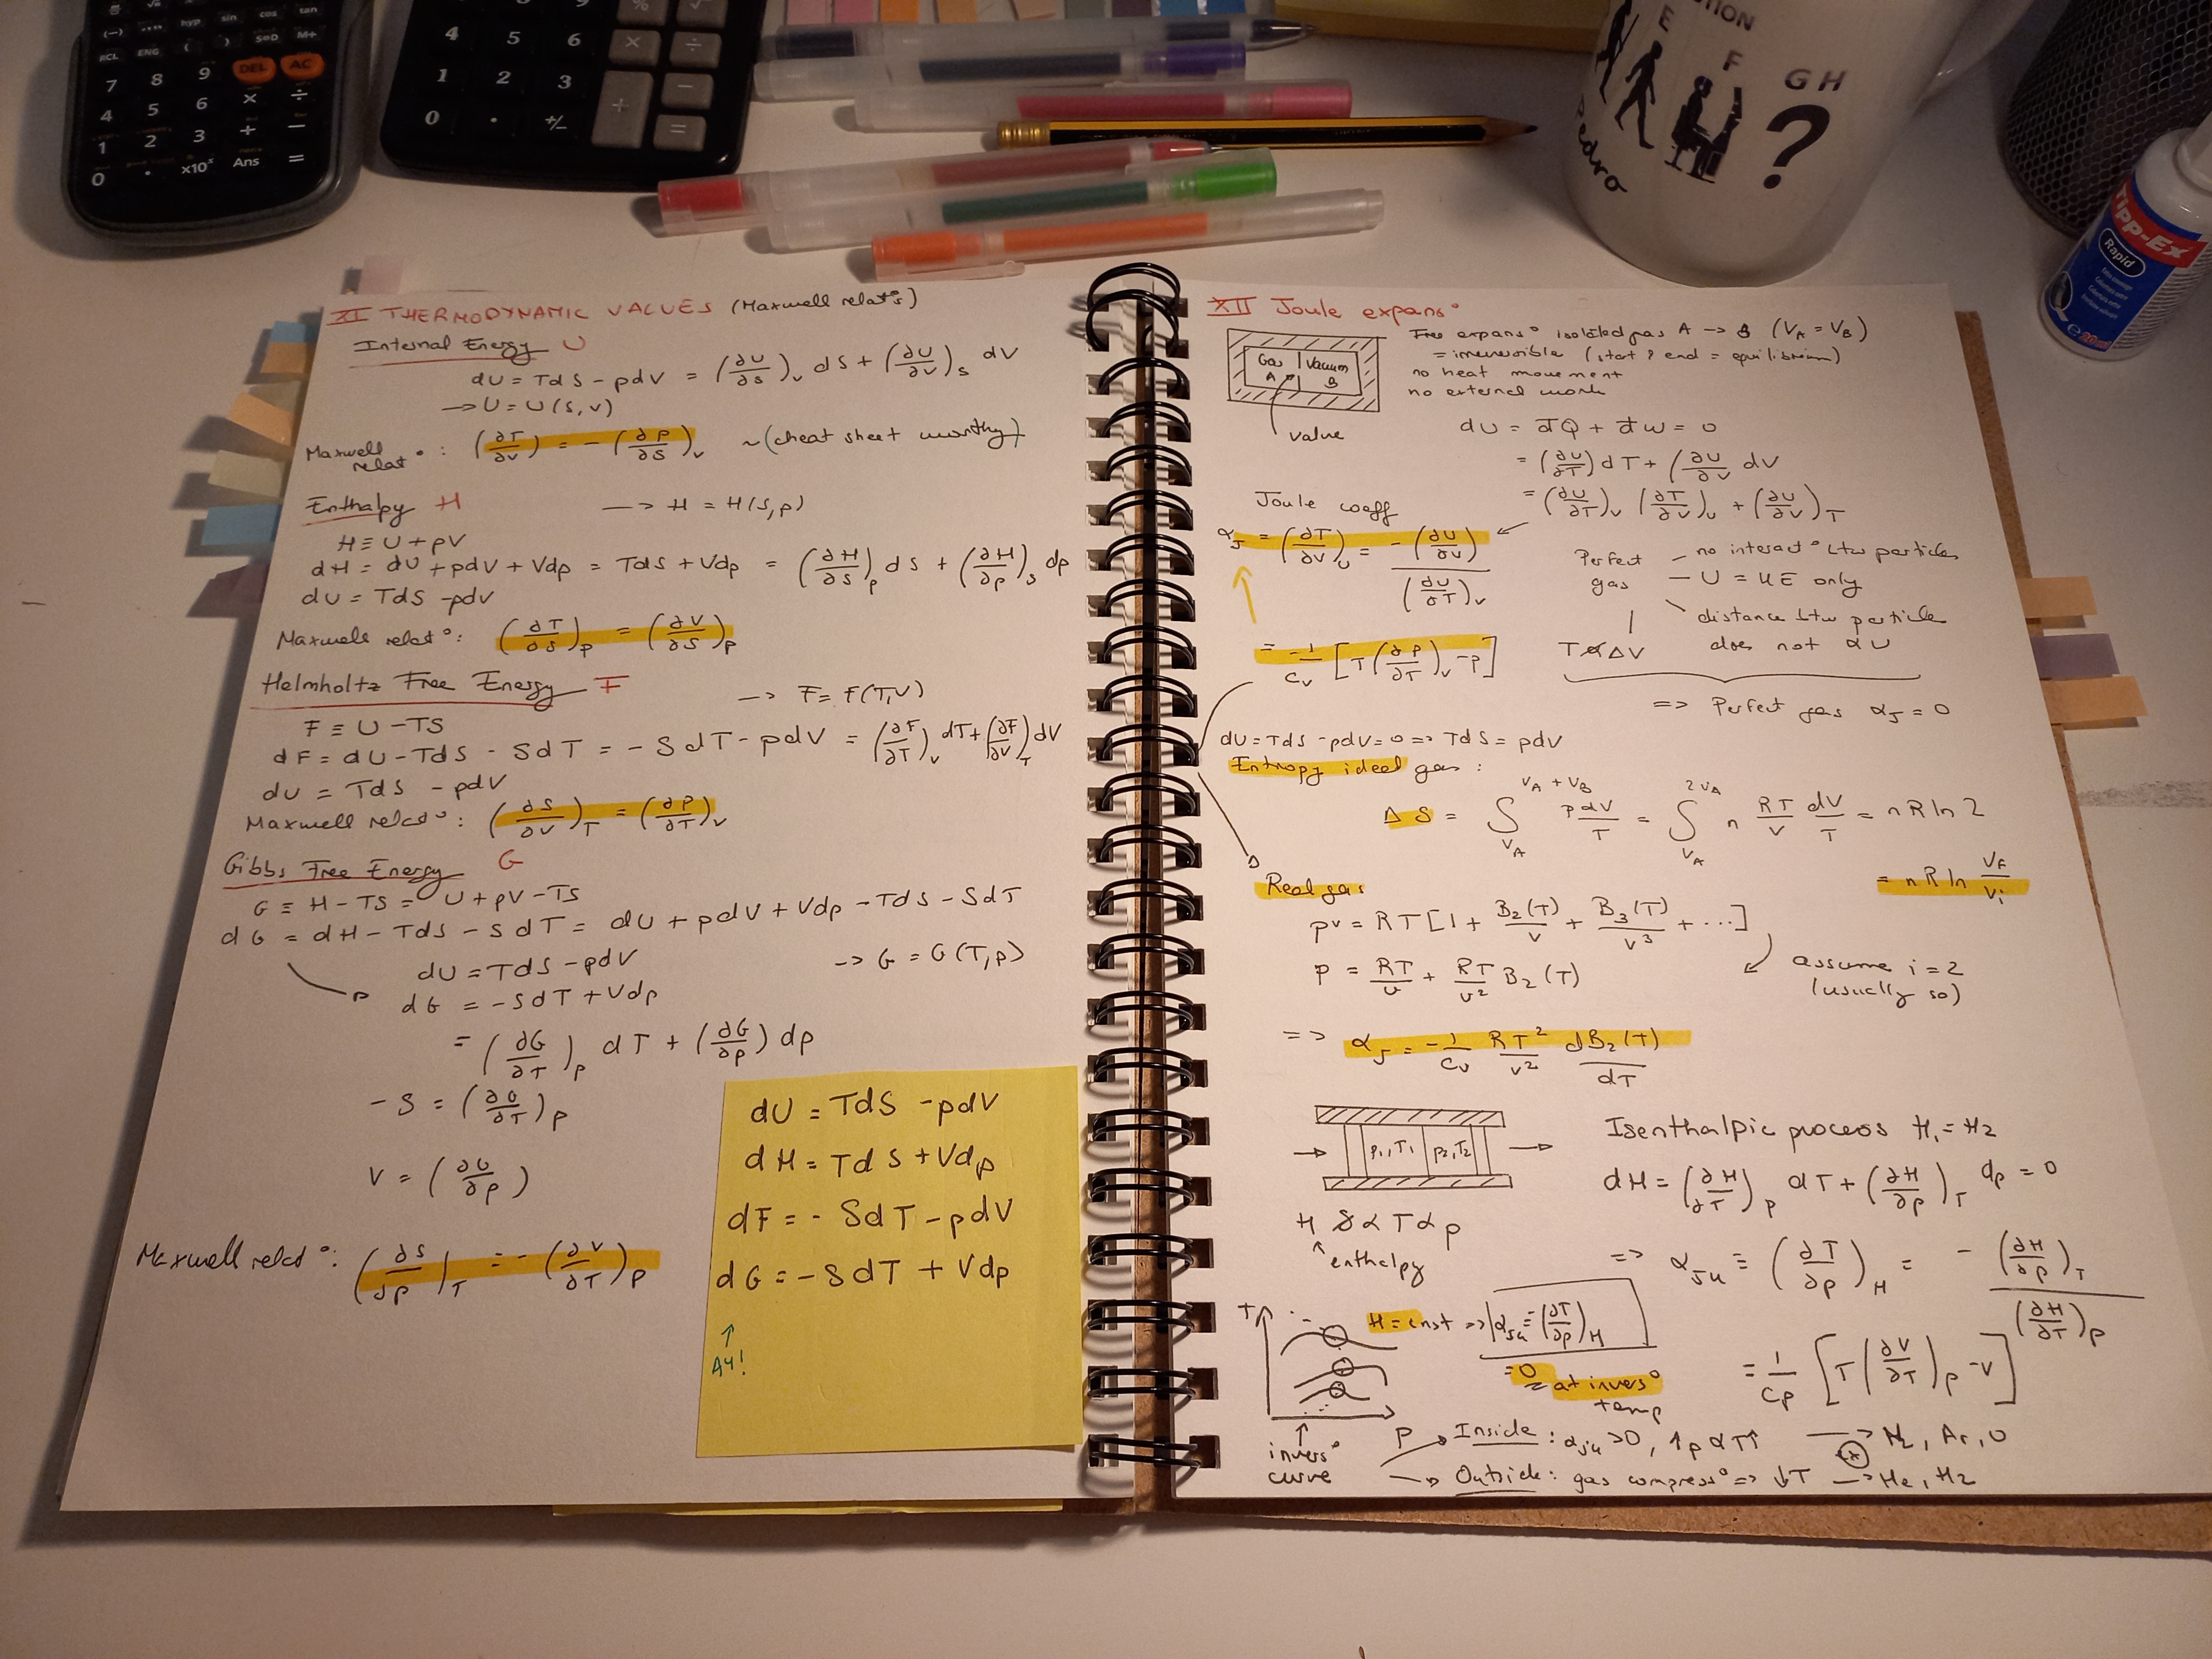 XI THERMODYNAMIC VALUES (Maxwell relat°s)
Internal Energy U
dU = TdS - pdV = (∂U/∂S)v dS + (∂U/∂V)s dV
→ U = U(S,V)
Maxwell relat°: (∂T/∂V) = -(∂p/∂S)v ~(cheat sheet worthy)
Enthalpy H → H = H(S,p)
H ≡ U + pV
dH = dU + pdV + Vdp = TdS + Vdp = (∂H/∂S)p dS + (∂H/∂p)s dp
dU = TdS - pdV
Maxwell relat°: (∂T/∂S)p = (∂V/∂S)p
Helmholtz Free Energy F → F = F(T,V)
F ≡ U - TS
dF = dU - TdS - SdT = -SdT - pdV = (∂F/∂T)v dT + (∂F/∂V)T dV
dU = TdS - pdV
Maxwell relat°: (∂S/∂V)T = (∂p/∂T)v
Gibbs Free Energy G
G ≡ H - TS = U + pV - TS
dG = dH - TdS - SdT = dU + pdV + Vdp - TdS - SdT
dU = TdS - pdV → G = G(T,p)
dG = -SdT + Vdp
= (∂G/∂T)p dT + (∂G/∂p) dp
-S = (∂G/∂T)p
V = (∂G/∂p)
Maxwell relat°: (∂S/∂p)T = -(∂V/∂T)p
dU = TdS - pdV
dH = TdS + Vdp
dF = -SdT - pdV
dG = -SdT + Vdp
↑
A4!
XII Joule expans°
Gas A
Vacuum B
value
Free expans° isolated gas A → B (VA = VB)
= irreversible (start & end = equilibrium)
no heat movement
no external work
dU = đQ + đW = 0
= (∂U/∂T) dT + (∂U/∂V) dV
= (∂U/∂T)v (∂T/∂V)u + (∂U/∂V)T
Joule coeff
αJ = (∂T/∂V)u = - (∂U/∂V) / (∂U/∂T)v
Perfect gas - no interact° btw particles
- U = KE only
distance btw particle does not dU
= -1/Cv [T(∂p/∂T)v - p]
T ∝ ΔV
=> Perfect gas αJ = 0
dU = TdS - pdV = 0 => TdS = pdV
Entropy ideal gas:
ΔS = ∫VA VA+VB pdV/T = ∫VA 2VA n RT/V dV/T = nR ln 2
= nR ln Vf/Vi
Real gas
pV = RT[1 + B2(T)/V + B3(T)/V² + ...]
p = RT/V + RT/V² B2(T)
assume i=2 (usually so)
=> αJ = -1/Cv RT²/V² dB2(T)/dT
p1,T1
p2,T2
Isenthalpic process H1 = H2
dH = (∂H/∂T)p dT + (∂H/∂p)T dp = 0
enthalpy
=> αJK ≡ (∂T/∂p)H = - (∂H/∂p)T / (∂H/∂T)p
H = cnst => αJK = (∂T/∂p)H
= 0 at invers° temp
= 1/Cp [T(∂V/∂T)p - V]
T
p
invers° curve
→ Inside: αJK > 0, ↑p dT↑ → N, Ar, O
→ Outside: gas compress° => ↓T → He, H2
0
1
2
3
4
5
6
7
8
9
DEL
AC
×
÷
+
−
·
×10ˣ
Ans
=
RCL
ENG
(
)
S⇔D
M+
(−)
hyp
sin
cos
tan
0
1
2
3
4
5
6
·
+/-
+
×
−
÷
=
Pedro
F GH
?
Tipp-Ex
Rapid
e 20ml